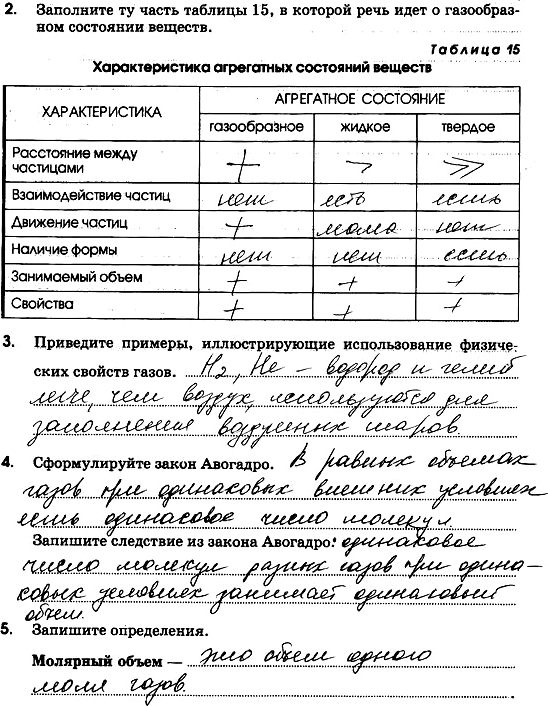 2. Заполните ту часть таблицы 15, в которой речь идет о газообраз-
ном состоянии веществ.
Таблица 15
Характеристика агрегатных состояний веществ
ХАРАКТЕРИСТИКА АГРЕГАТНОЕ СОСТОЯНИЕ
газообразное жидкое твердое
Расстояние между
частицами + > >>
Взаимодействие частиц нет есть есть
Движение частиц + мало нет
Наличие формы нет нет есть
Занимаемый объем + + +
Свойства + + +
3. Приведите примеры, иллюстрирующие использование физиче-
ских свойств газов. H2, He – водород и гелий
легче, чем воздух, используются для
заполнения воздушных шаров.
4. Сформулируйте закон Авогадро. В равных объемах
газов при одинаковых внешних условиях
есть одинаковое число молекул.
Запишите следствие из закона Авогадро: одинаковое
число молекул разных газов при одина-
ковых условиях занимает одинаковый
объем.
5. Запишите определения.
Молярный объем — это объем одного
моля газов.